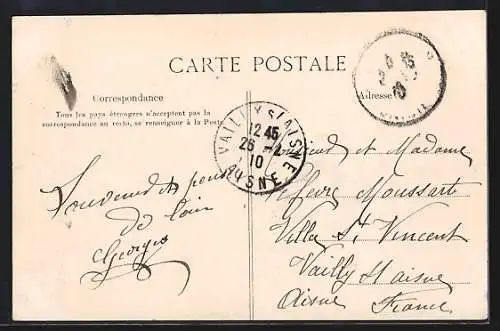 CARTE POSTALE
Correspondance
Tous les pays étrangers n'acceptent pas la
correspondance au recto, se renseigner à la Poste
Adresse
VAILLY S/ AISNE
12 45
26 - 2
10
AISNE
Souvenir et pensée
de loin
Georges
Monsieur et Madame
Lefèvre Moussart
Villa St Vincent
Vailly s/ aisne
Aisne France